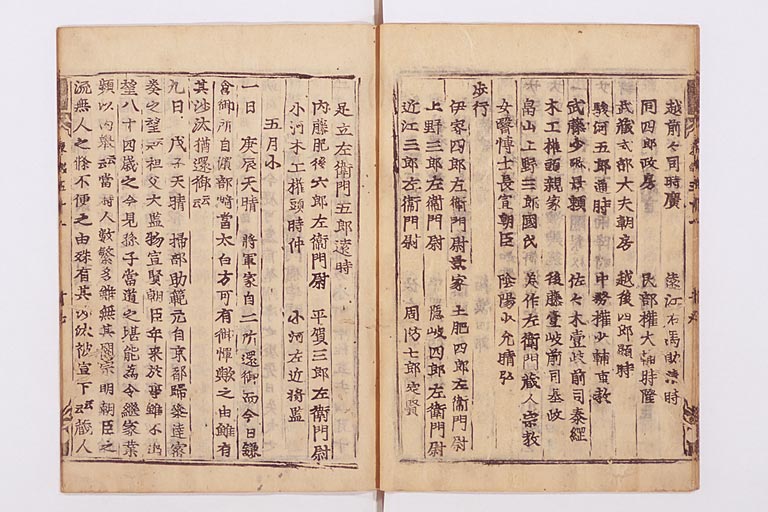 越前々司時廣　遠江右馬助清時
同四郎政房　民部權大輔時隆
武藏式部大夫朝房　越後四郎顕時
駿河五郎通時　中務權少輔重教
武藤少卿景頼　佐々木壹岐前司泰綱
木工權頭親家　後藤壹岐前司基政
畠山上野三郎國氏　美作左衛門藏人宗教
女醫博士長宣朝臣　陰陽少允晴弘
歩行
伊家四郎左衛門尉景家　土肥四郎左衛門尉
上野三郎左衛門尉　隱岐四郎左衛門尉
近江三郎左衛門尉　周防七郎定賢
足立左衛門五郎遠時
内藤肥後六郎左衛門尉　平賀三郎左衛門尉
小河木工權頭時仲　小河左近将監
五月小
一日　庚辰天晴　將軍家自二所還御而今日鎌
倉御所自傾部當太白方可有御憚歟之由雖有
其沙汰猶還御云云
九日　戊子天晴　掃部助範元自京都歸参達家
業之望云云祖父大監物宣賢朝臣年来於事雖不
望八十四歳之今見孫子當道之堪能為令継家葉
頻以内擧云云當時人數繁多雖無其闕宗明朝臣之
流無人之條不便之由殊有其沙汰被宣下云云藏人